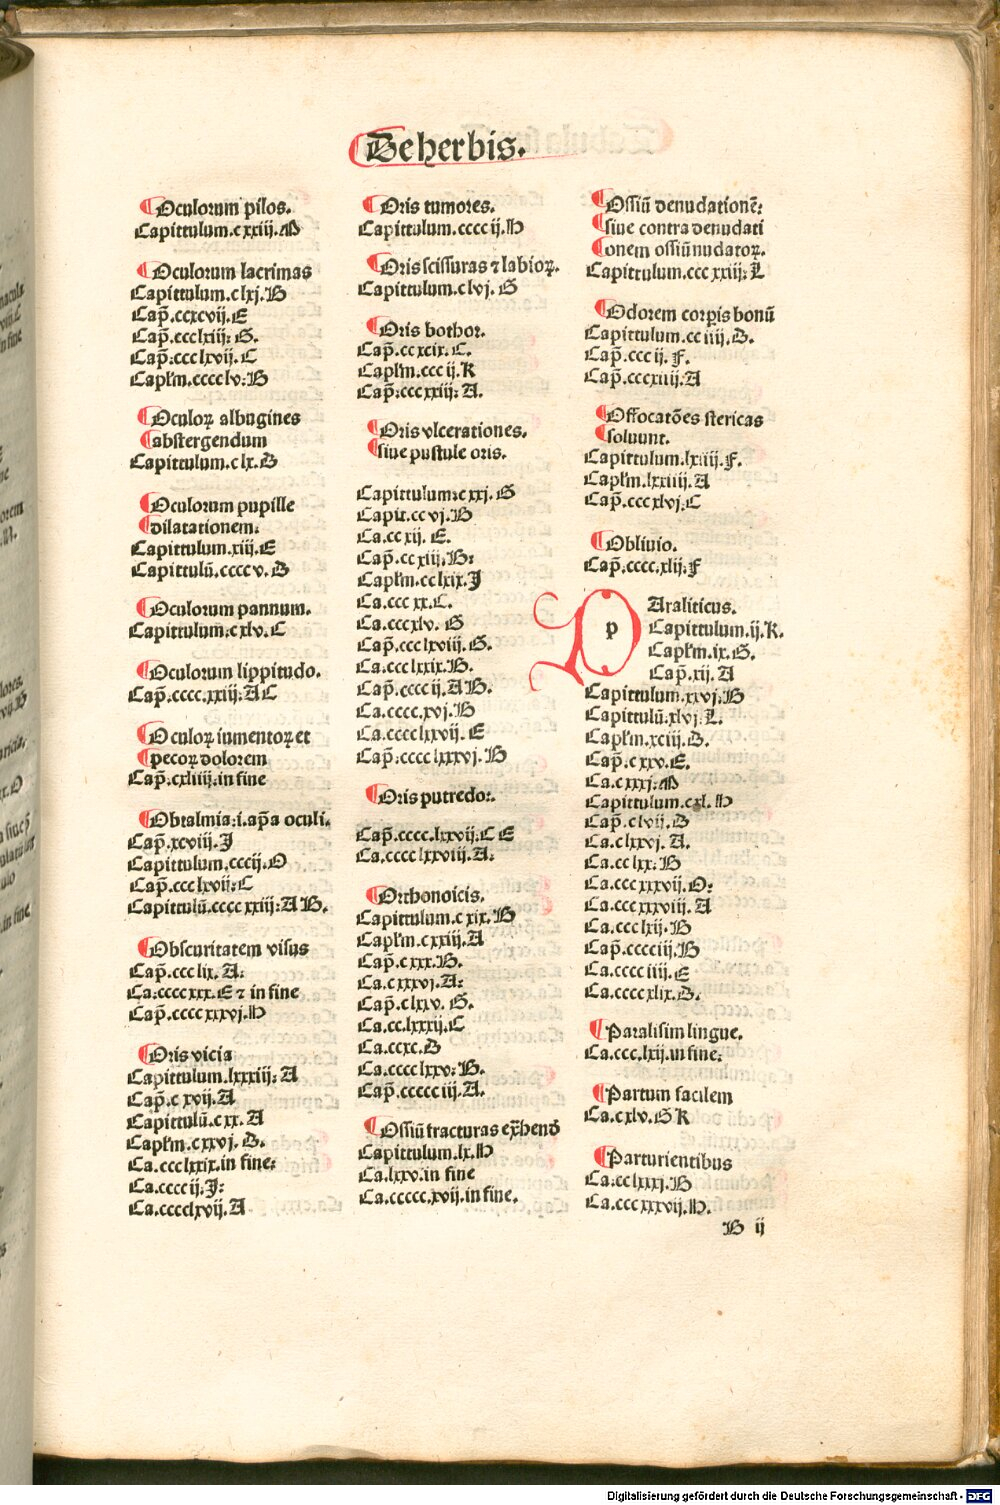 De herbis.
¶Oculorum pilos.
Capittulum.cxxiij.M
¶Oculorum lacrimas
Capittulum.clxj.B
Cap̃.ccxcvij.E
Cap̃.ccclxiij:G.
Cap̃:ccclxvij.C
Capl̃m.cccclv:B
¶Oculoꝝ albugines
¶abstergendum
Capittulum.clx.B
¶Oculorum pupille
¶dilatationem:
Capittulum.xiij.E
Capittulũ.ccccv.B
¶Oculorum pannum.
Capittulum:cxlv.C
¶Oculorum lippitudo.
Cap̃.cccc.xxiij:AC
¶Oculoꝝ iumentoꝝ et
¶pecoꝝ dolorem
Cap̃:cxliiij:in fine
¶Obtalmia:i.ap̃a oculi.
Cap̃.xcviij.J
Capittulum.cccij.O
Cap̃.ccclxvij:C
Capittulũ.ccccxxiij:AB.
¶Obscuritatem visus
Cap̃.ccclix.A:
Ca:ccccxxx.E ⁊ in fine
Cap̃.ccccxxxvj.H
¶Oris vicia
Capittulum.lxxxiij:A
Cap̃.cxvij.A
Capittulũ.cxx.A
Capl̃m.cxxvj.G.
Ca.ccclxxix.in fine:
Ca.ccccij.J:
Ca.cccclxvij.A
¶Oris tumores.
Capittulum.ccccij.H
¶Oris scissuras ⁊ labioꝝ.
Capittulum.clvj.G
¶Oris bothor.
Cap̃.ccxcix.C.
Capl̃m.cccij.K
Cap̃:cccxxiij:A.
¶Oris vlcerationes.
¶siue pustule oris.
Capittulum:cxxj.G
Capit.ccvj.B
Ca.ccxij.E.
Cap̃.ccxiij:B:
Capl̃m.cclxix.J
Ca.cccxx.C.
Ca.cccxlv.G
Cap̃.ccclxviij.G.
Ca:ccclxxix.B.
Cap̃.ccccij.AB.
Ca.cccc.xvj.B
Ca.cccclxxvij.E
Cap̃:cccclxxxvj.B
¶Oris putredo:.
Cap̃.cccc.lxxvij:CE
Ca.cccclxxviij.A:
¶Orthonoicis.
Capittulum.cxix.B
Capl̃m.cxxiij.A
Cap̃.cxxx.B.
Ca.cxxxvj.A:
Cap̃.clxxv.G.
Ca.cc.lxxxij.C
Ca.ccxc.B
Ca.cccclxxv:B.
Cap̃.ccccciij.A.
¶Ossiũ fracturas ex̃hend
Capittulum.lx.H
Ca.lxxv.in fine
Ca.ccccc.xvij.in fine.
¶Ossiũ denudationẽ:
¶siue contra denudati
¶onem ossiũ nudatoꝝ.
Capittulum.cccxxiij:L
¶Odorem corꝑis bonũ
Capittulum.cciiij.B.
Cap̃.cccij.F.
Cap̃.cccxiiij.A
¶Offocatões stericas
¶soluunt.
Capittulum.lxiiij.F.
Capl̃m.lxxiiij.A
Cap̃.cccxlvj:C
¶Obliuio.
Cap̃:cccc.xlij:F
p
Araliticus.
Capittulum.ij.K.
Capl̃m.ix.G.
Cap̃.xij.A
Capittulum.xxvj.B
Capittulũ.xlvj.L.
Capl̃m.xciij.B.
Cap̃.cxxv.E.
Ca.cxxxj.M
Capittulum.cxl.H
Cap̃.clvij.B
Ca.clxxvj.A.
Ca.cclxx:B
Ca.cccxxxvij.O:
Ca.cccxxxviij.A
Ca.ccclxij.B
Cap̃.cccciij.B
Ca.cccciiij.E
Ca.ccccxlix.B.
¶Paralisim lingue.
Ca.ccc.lxij.in fine:
¶Partum facilem
Ca.cxlv.GK
¶Parturientibus
Ca.cclxxxj.B
Ca.cccxxxvij.H.
B ij
Digitalisierung gefördert durch die Deutsche Forschungsgemeinschaft - DFG